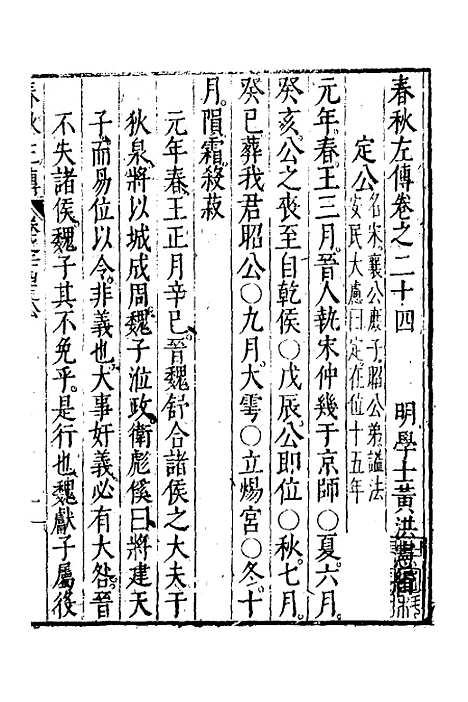 春秋左傳卷之二十四　明學士黃洪憲
定公名宋襄公庶子昭公弟諡法
安民大慮曰定在位十五年
元年春王三月晉人執宋仲幾于京師〇夏六月
癸亥公之喪至自乾侯〇戊辰公即位〇秋七月
癸巳葬我君昭公〇九月大雩〇立煬宮〇冬十
月隕霜殺菽
元年春王正月辛巳晉魏舒合諸侯之大夫于
狄泉將以城成周魏子涖政衛彪傒曰將建天
子而易位以令非義也大事奸義必有大咎晉
不失諸侯魏子其不免乎是行也魏獻子屬役